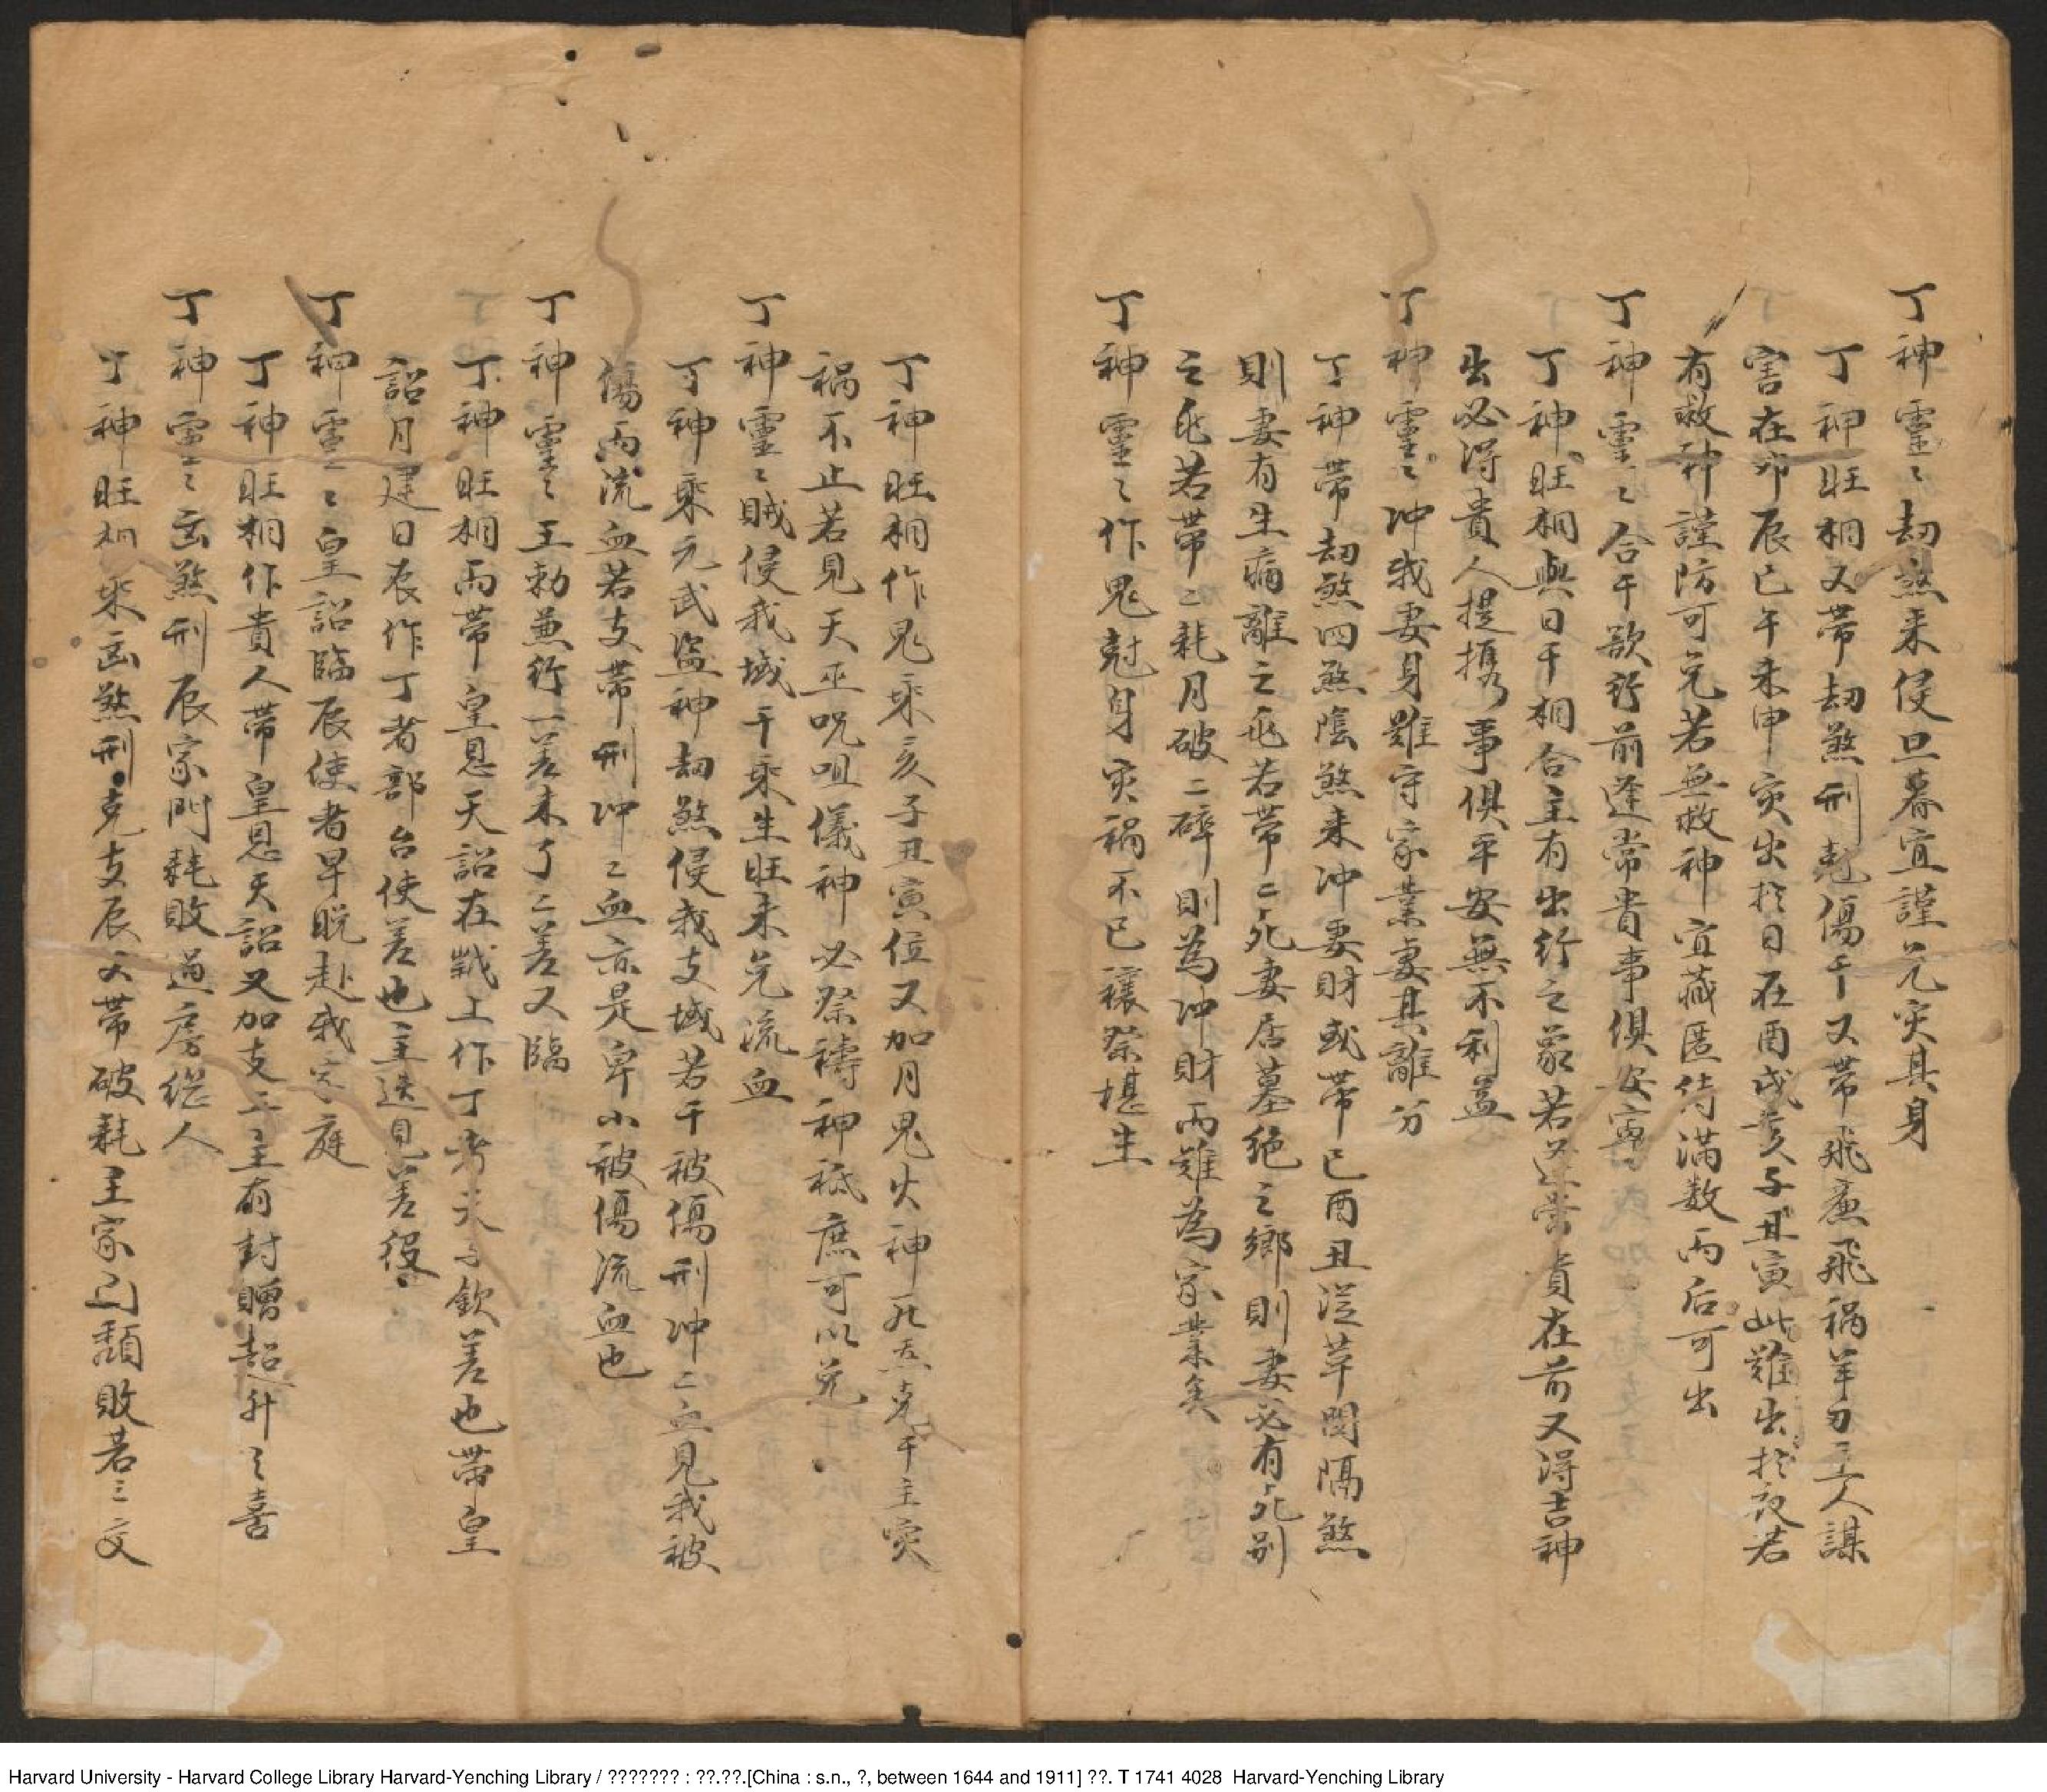 丁神靈〻劫煞来侵旦暮宜謹免灾其身
丁神旺相又帶劫煞刑尅傷干又帶飛廉飛祸羊刃主人謀
害在卯辰巳午未申灾出於日在酉戌亥子丑寅此難出於夜若
有救神謹防可免若無救神宜藏匿待满数而后可出
丁神靈〻合干欲行前逢常貴事俱安寧
丁神旺相與日干相合主有出行之象若逢常貴在前又得吉神
出必得貴人提携事俱平安無不利益
丁神靈〻冲我妻身難守家業妻其離分
丁神帶劫煞四煞陰煞来冲妻財或帶巳酉丑從革関隔煞
則妻有生痛離之兆若帶二死妻居墓絶之鄉則妻必有死别
之兆若帶二耗月破二碎則為冲財而難為家業矣
丁神靈〻作鬼尅身灾祸不已禳祭堪生
丁神旺相作鬼乘亥子丑寅位又加月鬼火神死炁克干主灾
祸不止若見天巫咒咀儀神必祭禱神祗庶可以免
丁神靈〻賊侵我域干乘生旺未免流血
丁神乘元武盗神劫煞侵我支域若干被傷刑冲二血見我被
傷而流血若支帶刑冲二血亦是卑小被傷流血也
丁神靈〻王勅兼行一差未了二差又臨
丁神旺相而帶皇恩天詔在歲上作丁者天子欽差也帶皇
詔月建日辰作丁者部台使差也主迭見差役
丁神靈〻皇詔臨辰使者早晚赴我家庭
丁神旺相作貴人帶皇恩天詔又加支上主有封贈超升之喜
丁神靈〻凶煞刑辰家門耗敗過房継人
丁神旺相乘凶煞刑克支辰又帶破耗主家門頽敗若三交